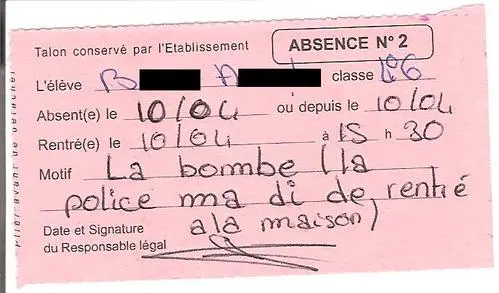 Talon conservé par l'Etablissement
ABSENCE N° 2
L'élève B A classe 106
Absent(e) le 10/04 ou depuis le 10/04
Rentré(e) le 10/04 à 15 h 30
Motif La bombe (la
police ma di de rentré
a la maison)
Date et Signature
du Responsable légal
plier avant de détacher